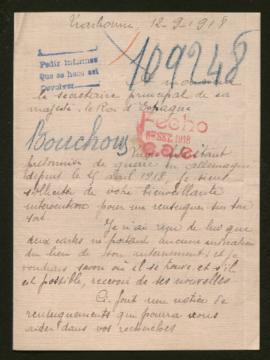 Narbonne, 12-9-1918
A
Pedir informes
Que se haga est
Devolver
109248
le secrétaire principal de sa
majesté le Roi d'Espagne
Fecho
SET. 1918
Bouchou
étant
prisonnier de guerre en Allemagne
depuis le avril 1918, je viens
solliciter de votre bienveillante
intervention pour me renseigner sur son
sort.
Je n'ai reçu de lui que
deux cartes ne portant aucune indication
du lieu de son internement; et je
voudrais savoir où il se trouve et s'il
est possible, recevoir de ses nouvelles
Ci-joint une notice de
renseignements qui pourra vous
aider dans vos recherches